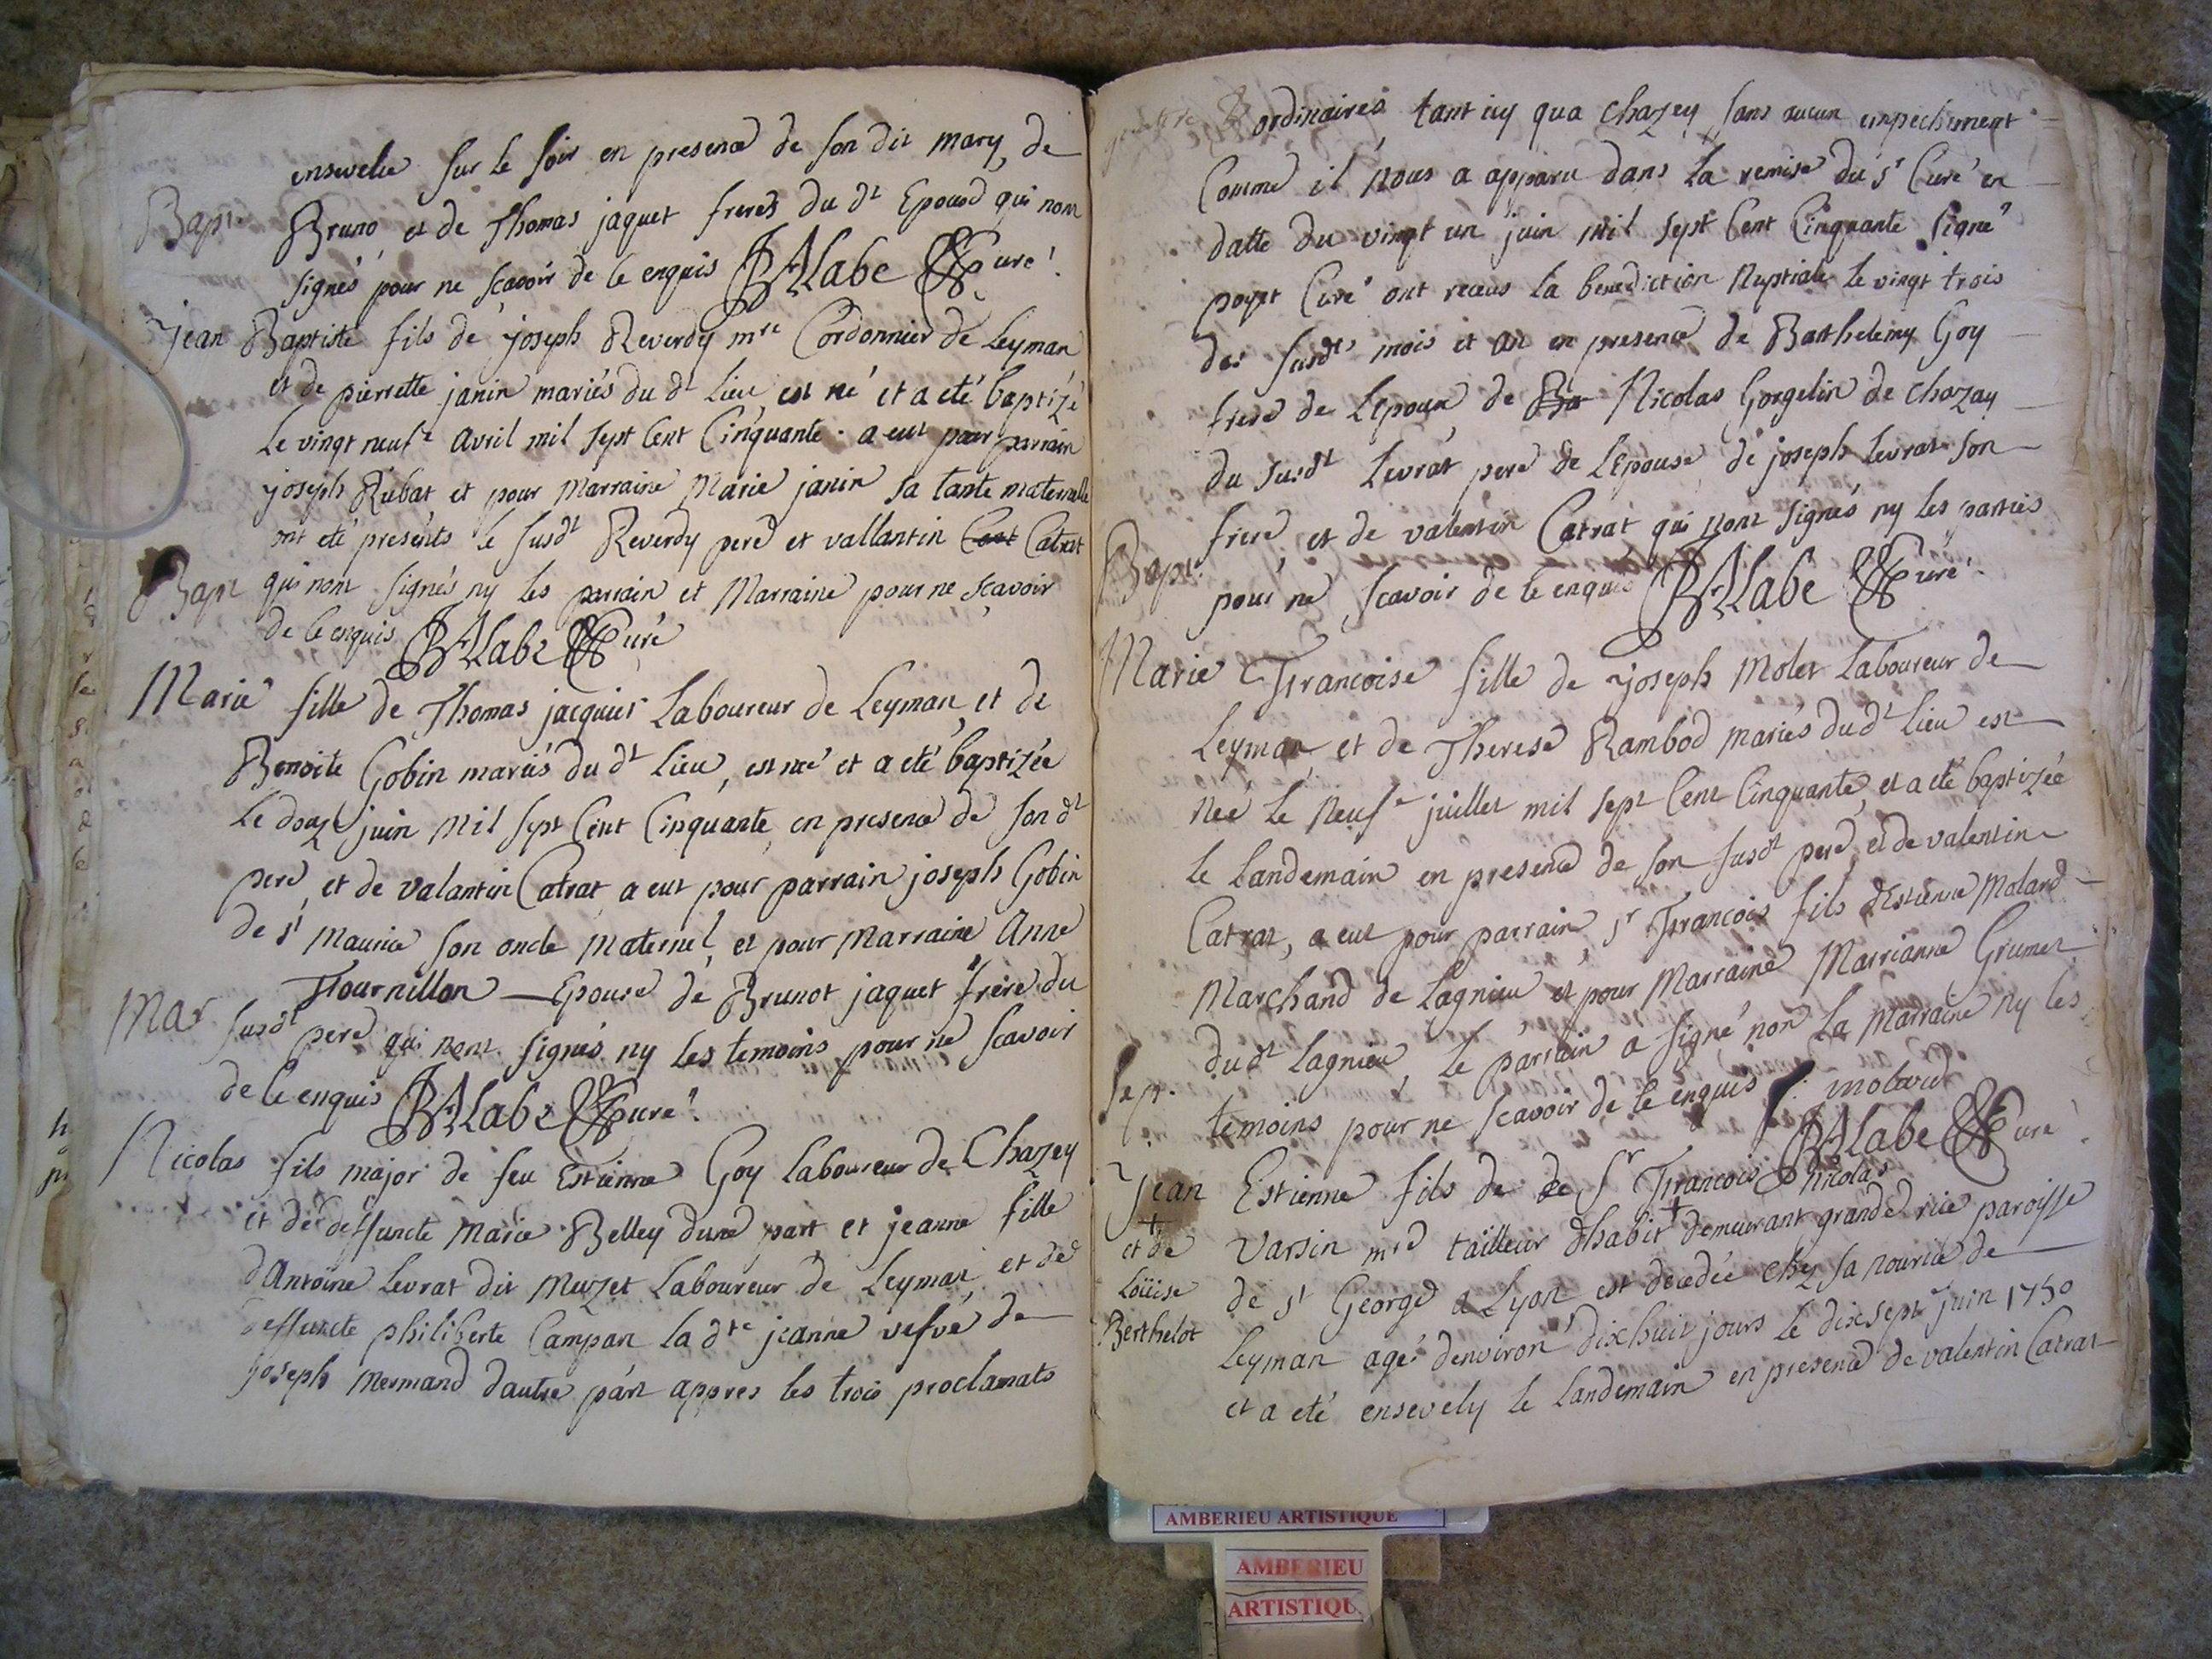 ensevelie sur le soir en presence de son dit mary, de
Bapt. Bruno, et de Thomas jaquet freres du dt Epoux qui nont
signés pour ne scavoir de ce enquis BALabe Curé.
jean Baptiste fils de joseph Reverdy mre Cordonnier de Leyman
et de pierrette janin mariés du dt Lieu est né et a eté baptizé
Le vingt neufe avril mil sept Cent Cinquante. a eut pour parrain
joseph Rubat et pour Marraine Marie janin sa tante maternelle
ont eté présents le susdt Reverdy pere et vallantin Catrat
Bapt qui nont signés ny les parrain et Marraine pour ne scavoir
de ce enquis BALabe Curé
Marie fille de Thomas jacquet Laboureur de Leyman, et de
Benoite Gobin mariés du dt Lieu, est née et a eté baptizée
Le douze juin Mil sept Cent Cinquante, en presence de son dt
pere, et de valantin Catrat, a eut pour parrain joseph Gobin
de st Maurice son oncle maternel, et pour Marraine Anne
Fournillon — Epouse de Brunot jaquet frère du
Mar susdt pere qui nont signés ny les temoins pour ne scavoir
de ce enquis BALabe Curé.
Nicolas fils major de feu Estienne Goy Laboureur de Chazey
et de deffuncte Marie Belley dune part et jeanne fille
d'Antoine Levrat dit Muzet Laboureur de Leyman, et de
deffuncte philiberte Campan la dte jeanne vefve de
joseph Mermand dautre part appres les trois proclamats
ordinaires tant icy qua Chazey sans aucun empechement
Comme il nous a apparu dans la remise du sr Curé en
datte du vingt un juin mil sept Cent Cinquante signé
poyet Curé ont receus la benediction Nuptiale le vingt trois
des susdts mois et an en presence de Barthelemy Goy
frere de Lepoux, de Ba Nicolas Gorgelin de Chazay
du susdt Levrat pere de L'Epouse, de joseph Levrat son
frere, et de valentin Catrat qui nont signés ny les parties
Bapt. pour ne scavoir de ce enquis BALabe Curé.
Marie Francoise fille de joseph Molet Laboureur de
Leyman et de Therese Rambod mariés du dt Lieu est
née Le Neufe juillet mil sept Cent Cinquante, et a eté baptizée
le Landemain en presence de son susdt pere, et de valentin
Catrat, a eut pour parrain, sr Francois fils d'Estienne Molard
Marchand de Lagnieu et pour Marraine Marrianne Grumet
du dt Lagnieu, le parrain a signé non la Marraine ny les
Sept. temoins pour ne scavoir de ce enquis f: molard
BALabe Curé.
Jean Estienne fils de de Sr Francois Nicolas
+ et de Loüise Berthelot
Varsin mrd tailleur dhabit + demeurant grande rüe paroisse
de st George a Lyon est decedée chez sa nourice de
Leyman agé denviron dixhuit jours le dixsept juin 1750
et a eté ensevely le Landemain en presence de valentin Catrat
AMBERIEU ARTISTIQUE
AMBERIEU
ARTISTIQU